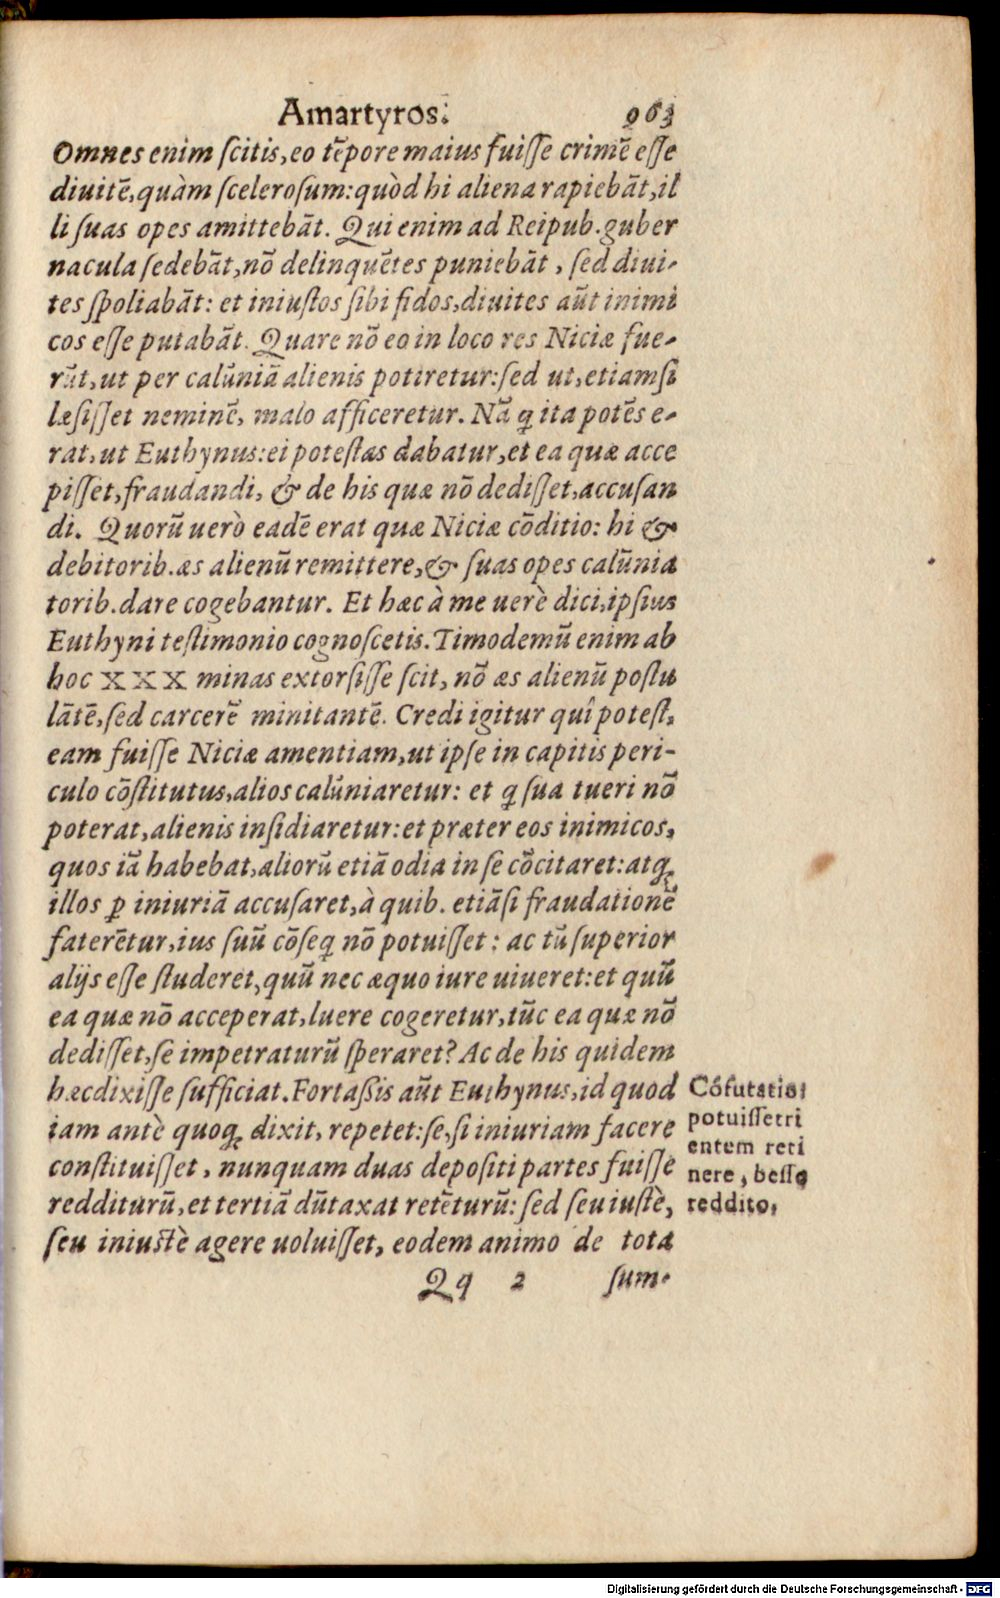 Amartyros. 963
Omnes enim ſcitis, eo tẽpore maius fuiſſe crimẽ eſſe
diuitẽ, quàm ſceleroſum: quòd hi aliena rapiebãt, il
li ſuas opes amittebãt. Qui enim ad Reipub. guber
nacula ſedebãt, nõ delinquẽtes puniebãt, ſed diui-
tes ſpoliabãt: et iniuſtos ſibi fidos, diuites aũt inimi
cos eſſe putabãt. Quare nõ eo in loco res Niciæ fue-
rũt, ut per calũniã alienis potiretur: ſed ut, etiamſi
læſiſſet neminẽ, malo afficeretur. Nã q ita potẽs e-
rat, ut Euthynus: ei poteſtas dabatur, et ea quæ acce
piſſet, fraudandi, & de his quæ nõ dediſſet, accuſan
di. Quorũ uerò eadẽ erat quæ Niciæ cõditio: hi &
debitorib. æs alienũ remittere, & ſuas opes calũnia
torib. dare cogebantur. Et hæc à me uerè dici, ipſius
Euthyni teſtimonio cognoſcetis. Timodemũ enim ab
hoc XXX minas extorſiſſe ſcit, nõ æs alienũ poſtu
lãtẽ, ſed carcerẽ minitantẽ. Credi igitur quî poteſt,
eam fuiſſe Niciæ amentiam, ut ipſe in capitis peri-
culo cõſtitutus, alios calũniaretur: et q ſua tueri nõ
poterat, alienis inſidiaretur: et præter eos inimicos,
quos iã habebat, aliorũ etiã odia in ſe cõcitaret: atq;
illos ꝑ iniuriã accuſaret, à quib. etiãſi fraudationẽ
faterẽtur, ius ſuũ cõſeq nõ potuiſſet: ac tũ ſuperior
alijs eſſe ſtuderet, quũ nec æquo iure uiueret: et quũ
ea quæ nõ acceperat, luere cogeretur, tũc ea quæ nõ
dediſſet, ſe impetraturũ ſperaret? Ac de his quidem
hæc dixiſſe ſufficiat. Fortaßis aũt Euthynus, id quod
iam antè quoq; dixit, repetet: ſe, ſi iniuriam facere
conſtituiſſet, nunquam duas depoſiti partes fuiſſe
redditurũ, et tertiã dũtaxat retẽturũ: ſed ſeu iuſtè,
ſeu iniuſtè agere uoluiſſet, eodem animo de tota
Qq 2 ſum-
Cõfutatio:
potuiſſe tri
entem reti
nere, beſſe
reddito.
Digitalisierung gefördert durch die Deutsche Forschungsgemeinschaft - DFG